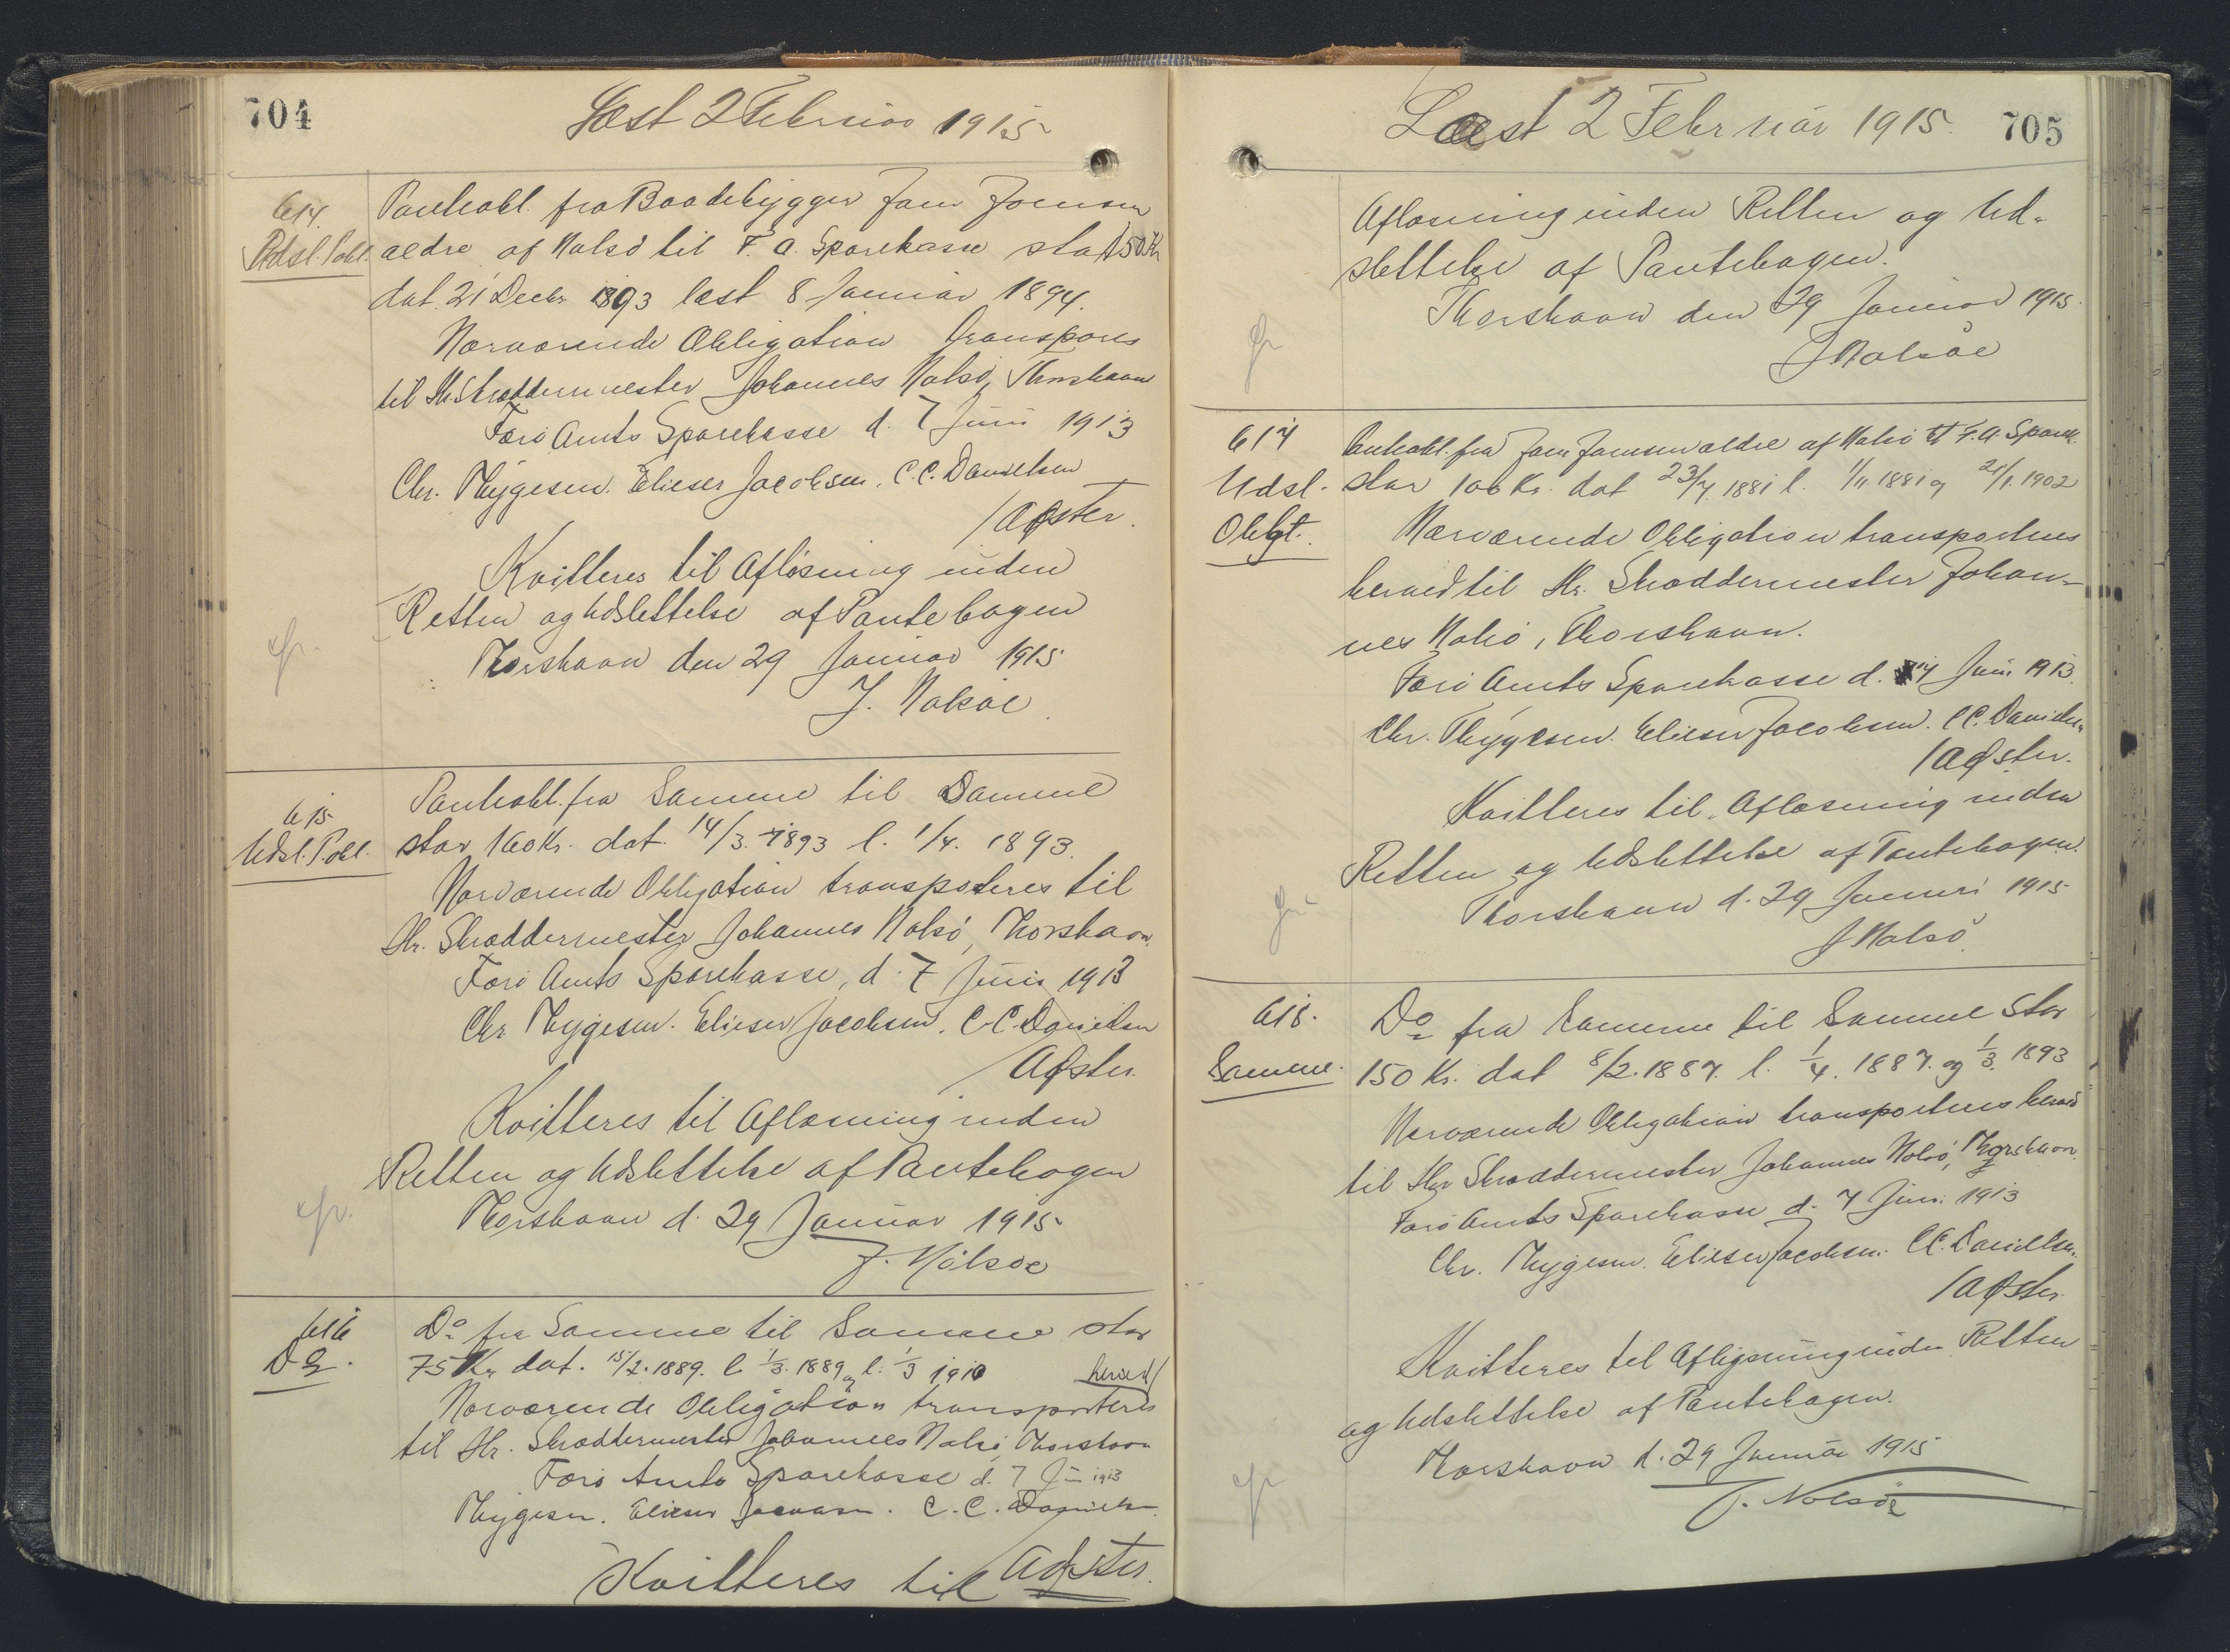 704
Læst 2 Februar 1915
614.
Udsl. Pobl.
Panteobl. fra Baadebygger Joen Joensen
ældre af Nolsö til F. A. Sparekasse stor 150 Kr
dat. 21 Decbr 1893 læst 8 Januar 1894.
Nærværende Obligation transpores
til Hr. Skræddermester Johannes Nolsö, Thorshavn
Færö Amts Sparekasse d. 7 Juni 1913
Chr. Thygesen. Elieser Jacobsen. C. C. Danielsen
Kvitteres til Aflösning inden
Retten og Udslettelse af Pantebogen
Thorshavn den 29 Januar 1915
J. Nolsöe
615
Udsl. P.obl.
Panteobl. fra Samme til Samme
stor 160 Kr. dat. 14/3. 1893 l. 1/4. 1893.
Nærværende Obligation transporteres til
Hr. Skræddermester Johannes Nolsö, Thorshavn
Færö Amts Sparekasse, d. 7 Juni 1913
Chr Thygesen. Elieser Jacobsen. C. C. Danielsen
Kvitteres til Aflösning inden
Retten og Udslettelse af Pantebogen
Thorshavn d. 29 Januar 1915
J. Nolsöe
616
Do.
Do fra Samme til Samme stor
75 Kr dat. 15/2. 1889. l. 1/3. 1889 og l. 1/3 1910
herved/
Nærværende Obligation transporteres
til Hr. Skræddermester Johannes Nolsö, Thorshavn
Færö Amts Sparekasse d. 7 Juni 1913
Thygesen. Elieser Jacobsen. C. C. Danielsen.
Kvitteres til
705
Læst 2 Februar 1915.
Aflösning inden Retten og Ud-
slettelse af Pantebogen.
Thorshavn den 29 Januar 1915
J Nolsöe
617
Udsl.
Oblgt.
Panteobl. fra Joen Joensen ældre af Nolsö til F. A. Spark.
stor 100 Kr. dat 23/7. 1881 l. 1/11. 1881 og 21/1. 1902
Nærværende Obligation transporteres
herved til Hr. Skræddermester Johan-
nes Nolsö, Thorshavn.
Færö Amts Sparekasse d. 7 Juni 1913.
Chr. Thygesen. Elieser Jacobsen. C C. Danielsen
Kvitteres til Aflösning inden
Retten og Udslettelse af Pantebogen.
Thorshavn d. 29 Januar 1915
J Nolsö
618.
Samme.
Do fra Samme til Samme stor
150 Kr. dat 8/2. 1887. l. 1/4. 1887. og 1/3. 1893
Nærværende Obligation transporteres herved
til Hr Skræddermester Johannes Nolsö, Thorshavn.
Færö Amts Sparekasse d. 7 Juni 1913
Chr. Thygesen. Elieser Jacobsen. C C. Danielsen.
Kvitteres til Aflösning inden Retten
og Udslettelse af Pantebogen.
Thorshavn d. 29 Januar 1915
J. Nolsöe